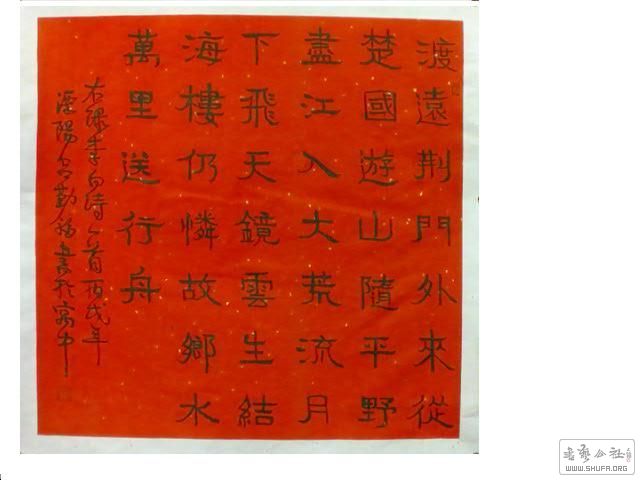 渡遠荆門外來從
楚國遊山隨平野
盡江入大荒流月
下飛天鏡雲生結
海樓仍憐故鄉水
萬里送行舟
右録李白詩一首丙戌年
溧陽呂勤福書於寓中
書藝公社
WWW.SHUFA.ORG